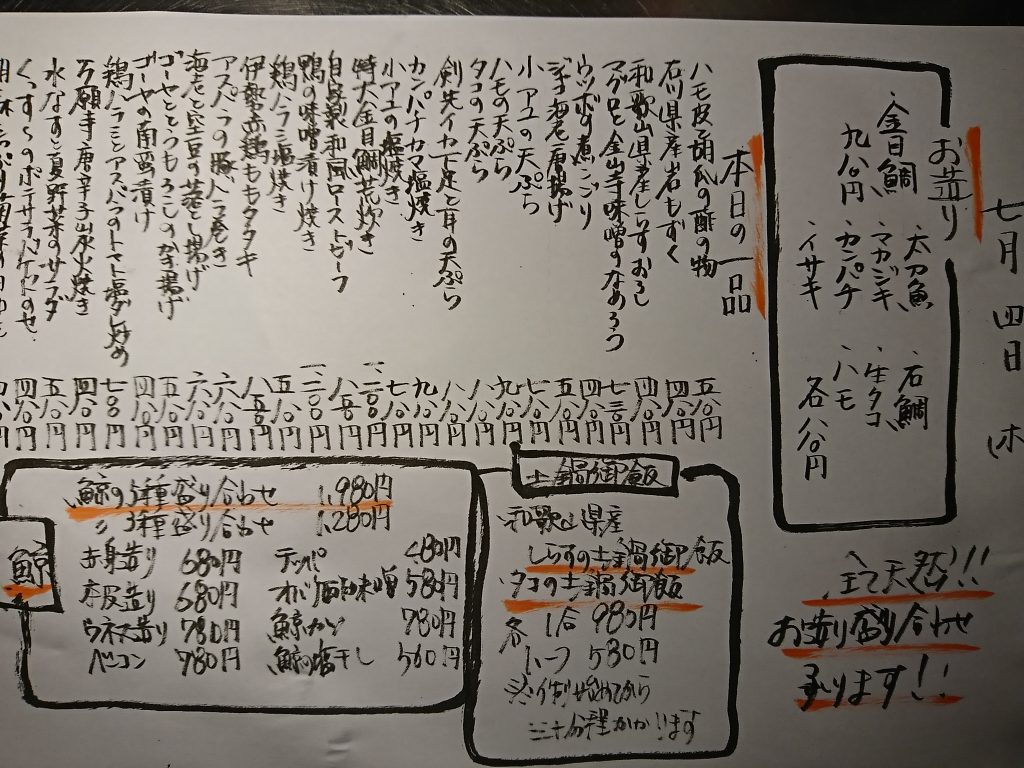 七月四日 木
お造り
・金目鯛 九八〇円
・太刀魚 ・石鯛
・マカジキ ・生タコ
・カンパチ ・ハモ
・イサキ 各八八〇円
全て天然!!
お造り盛り合わせ
承ります!!
本日の一品
ハモ皮と胡瓜の酢の物 五八〇円
石川県産岩もずく 四八〇円
和歌山県産しらすおろし 四八〇円
マグロと金山寺味噌のなめろう 七三〇円
ウツボの煮こごり 四八〇円
海老唐揚げ 五八〇円
小アユの天ぷら 七八〇円
ハモの天ぷら 九八〇円
タコの天ぷら 八八〇円
剣先イカ下足と耳の天ぷら 八八〇円
カンパチカマ塩焼き 九八〇円
小アユの塩焼き 七八〇円
特大金目鯛荒炊き
自家製和風ローストビーフ 八五〇円
鴨の味噌漬け焼き
鶏ハラミ塩焼き 五八〇円
伊勢赤鶏ももタタキ 八五〇円
アスパラの豚バラ巻き 六八〇円
海老と空豆の落とし揚げ 六八〇円
ゴーヤととうもろこしのかき揚げ 五八〇円
ゴーヤの南蛮漬け 四八〇円
鶏ハラミとアスパラのトマト塩だれ炒め 七八〇円
万願寺唐辛子炭火焼き 四八〇円
水なすと夏野菜のサラダ 五八〇円
くんすくのポテサラバケットのせ 四八〇円
土鍋御飯
和歌山県産
しらすの土鍋御飯
タコの土鍋御飯
各 1合 980円
ハーフ 530円
三十分程かかります
鯨
鯨の5種盛り合わせ 1,980円
〃 3種盛り合わせ 1,280円
赤身造り 680円
本皮造り 680円
ウネス造り 780円
ベーコン 780円
テッパ 480円
オバケ酢味噌 580円
鯨カツ 780円
鯨の塩干し 560円